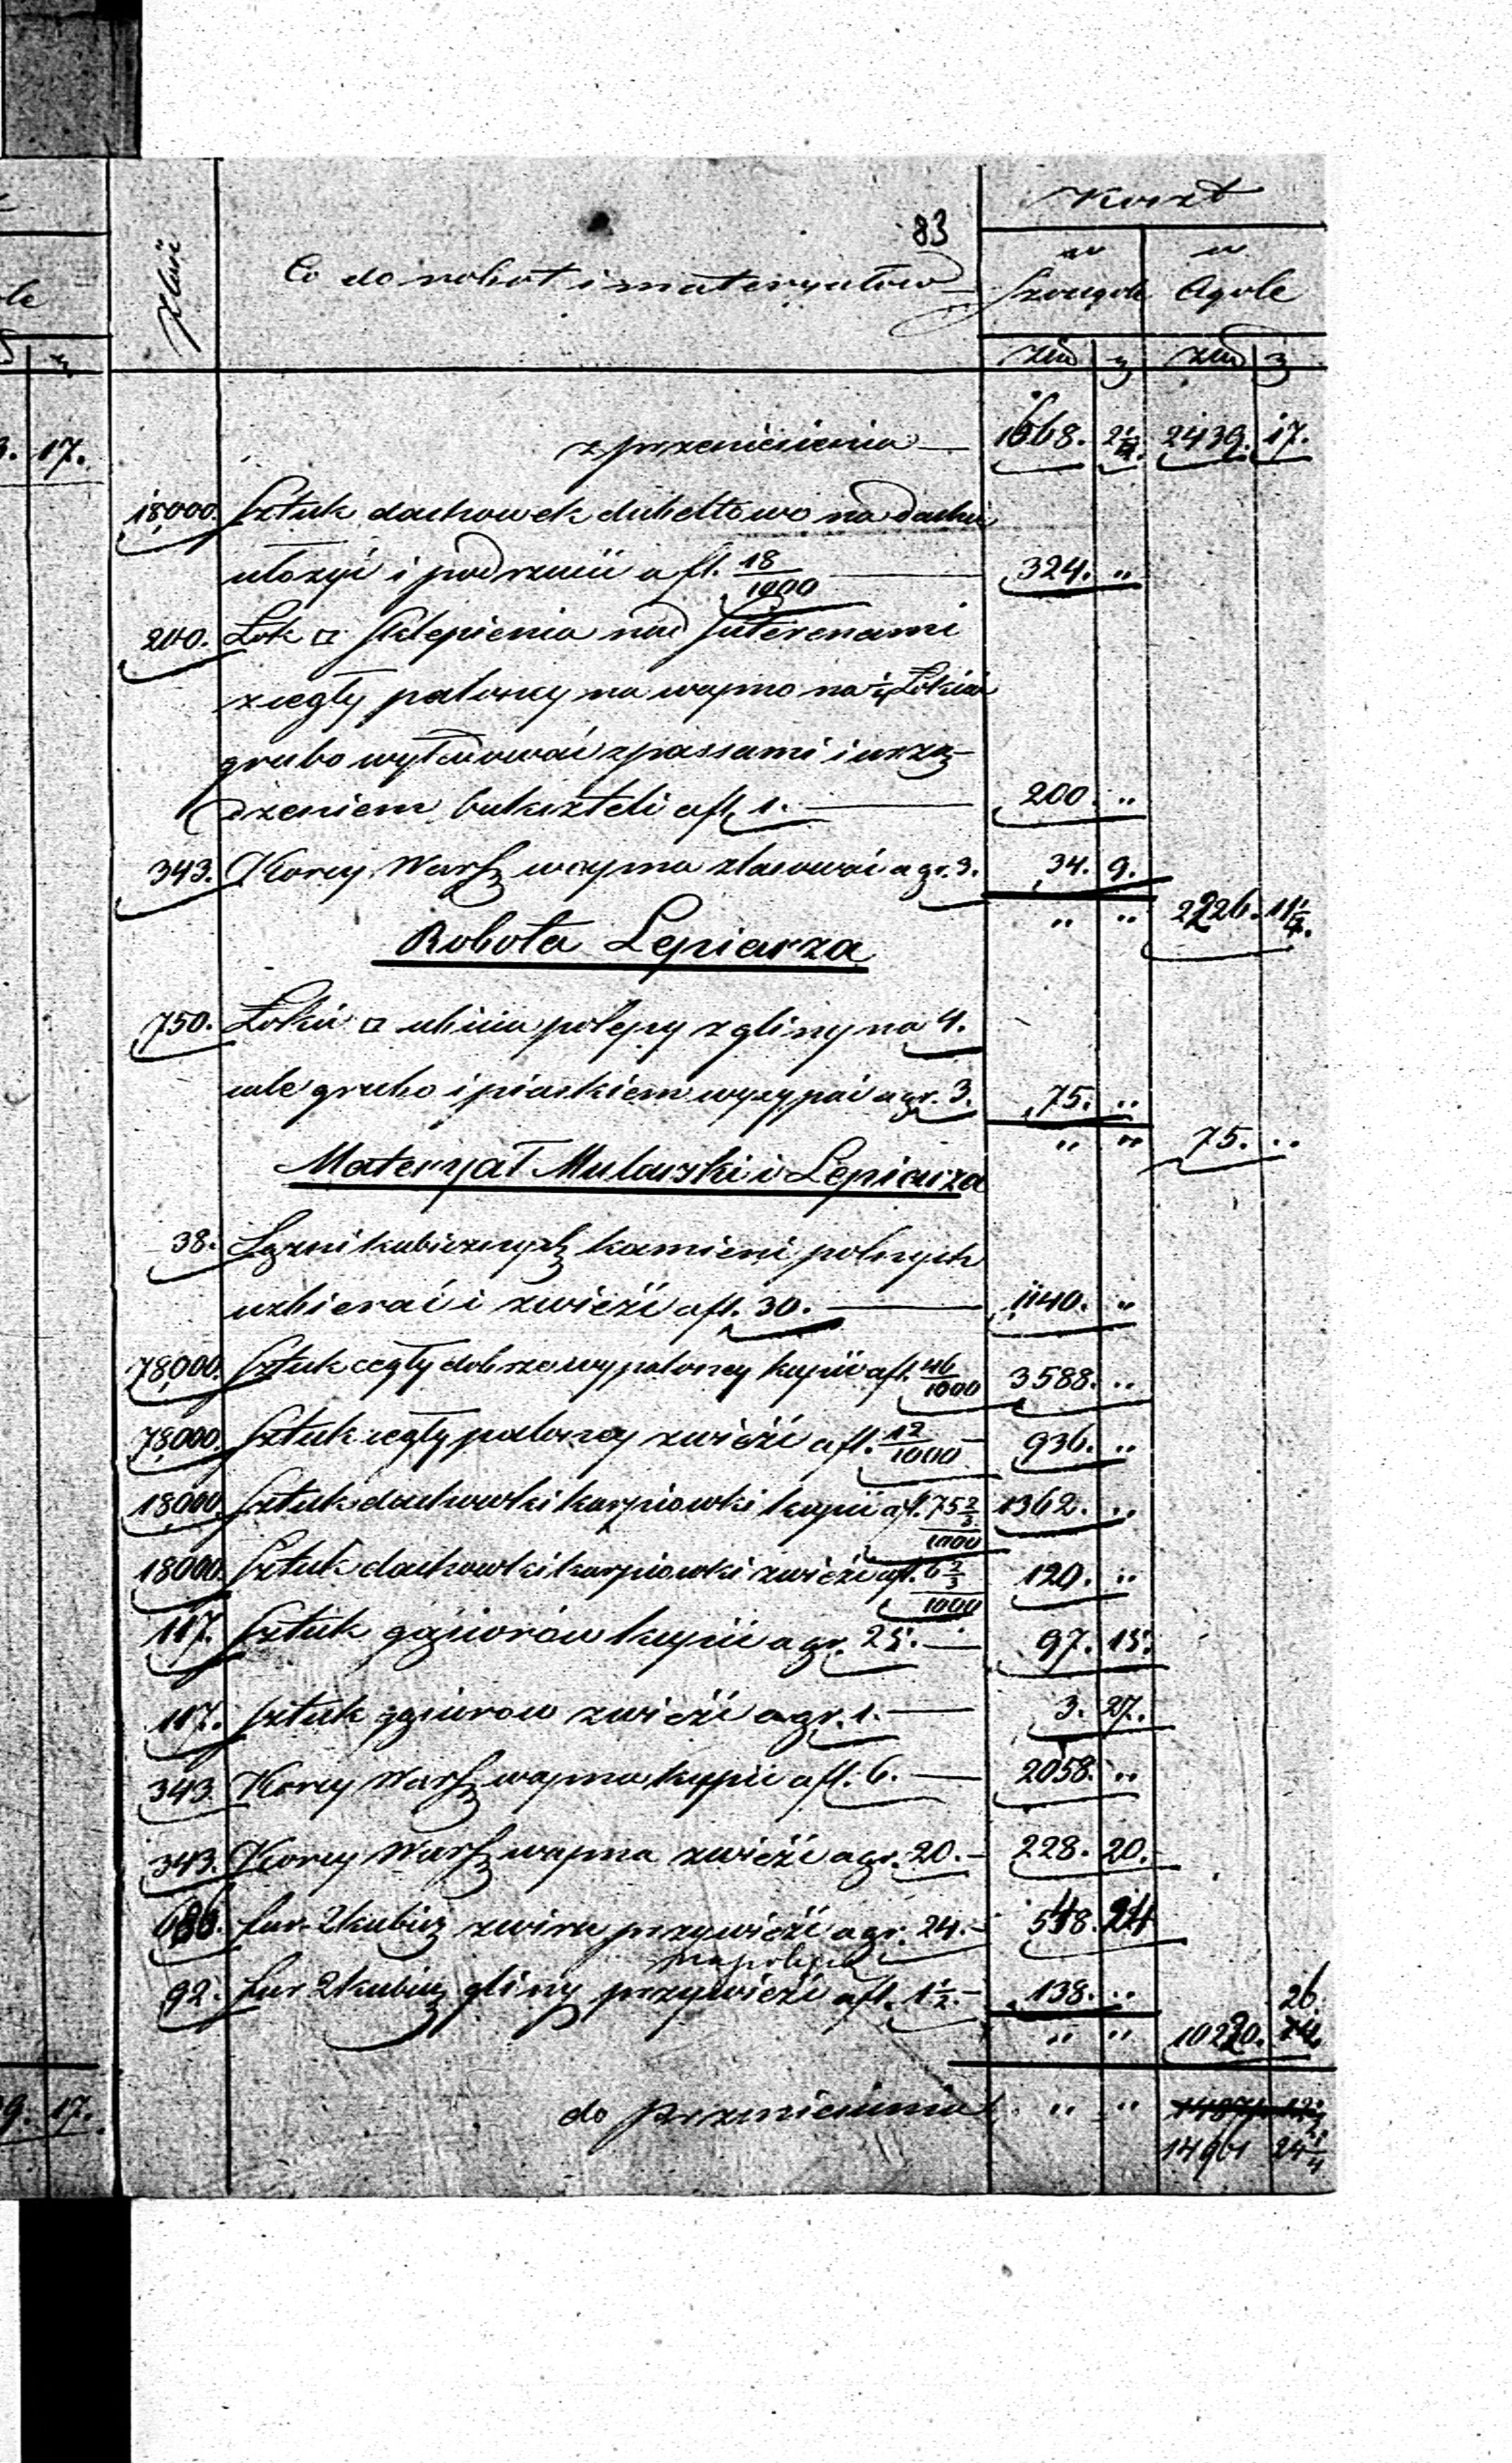 83
Koszt
Ilość Co do robot i materyałów w Szczególe w Ogóle
złp gr złp gr
z przeniesienia — 1668. 2¼. 2439. 17.
18,000. Sztuk dachowek dubeltowo na dachu
ułozyć i podrzucić a fl. 18/1000 — 324. „
200. Łok □ sklepienia nad suterenami
z cegły paloney na wapno na ½ Łokcia
grubo wymurować z passami i urzą-
dzeniem bukszteli a fl. 1. — 200. „
343. Korcy Warsz wapna zlasować a gr. 3. 34. 9.
„ „ 2226. 11¼.
Robota Lepiarza
750. Łokci □ ubicia polepy z gliny na 4.
cale grubo i piaskiem wysypać a gr. 3. 75. „
„ „ 75. „
Materyał Mularski i Lepiarza
38. Sązni kubicznych kamieni polnych
uzbierać i zwieźć a fl. 30. — 1140. „
78,000. Sztuk cegły dobrze wypaloney kupić a fl. 46/1000 3588. „
78,000. Sztuk cegły paloney zwieźć a fl. 12/1000 — 936. „
18,000. Sztuk dachowki karpiowki kupić a fl. 75⅔/1000 1362. „
18000. Sztuk dachowki karpiowki zwieźć a fl. 6⅔/1000 120. „
117. Sztuk gąsiorów kupić a gr. 25. — 97. 15.
117. sztuk gąsiorow zwieźć a gr. 1. — 3. 27.
343. Korcy Warsz wapna kupić a fl. 6. — 2058. „
343. Korcy Warsz wapna zwieźć a gr. 20. — 228. 20.
686. fur. 2 kubicz zwiru przywieźć a gr. 24. — 548. 24
na polepę
92. fur 2 kubicz gliny przywieźć a fl. 1½. — 138. „
26.
„ „ 10220.
do przeniesienia „ „
14961 24¼
17.
17.